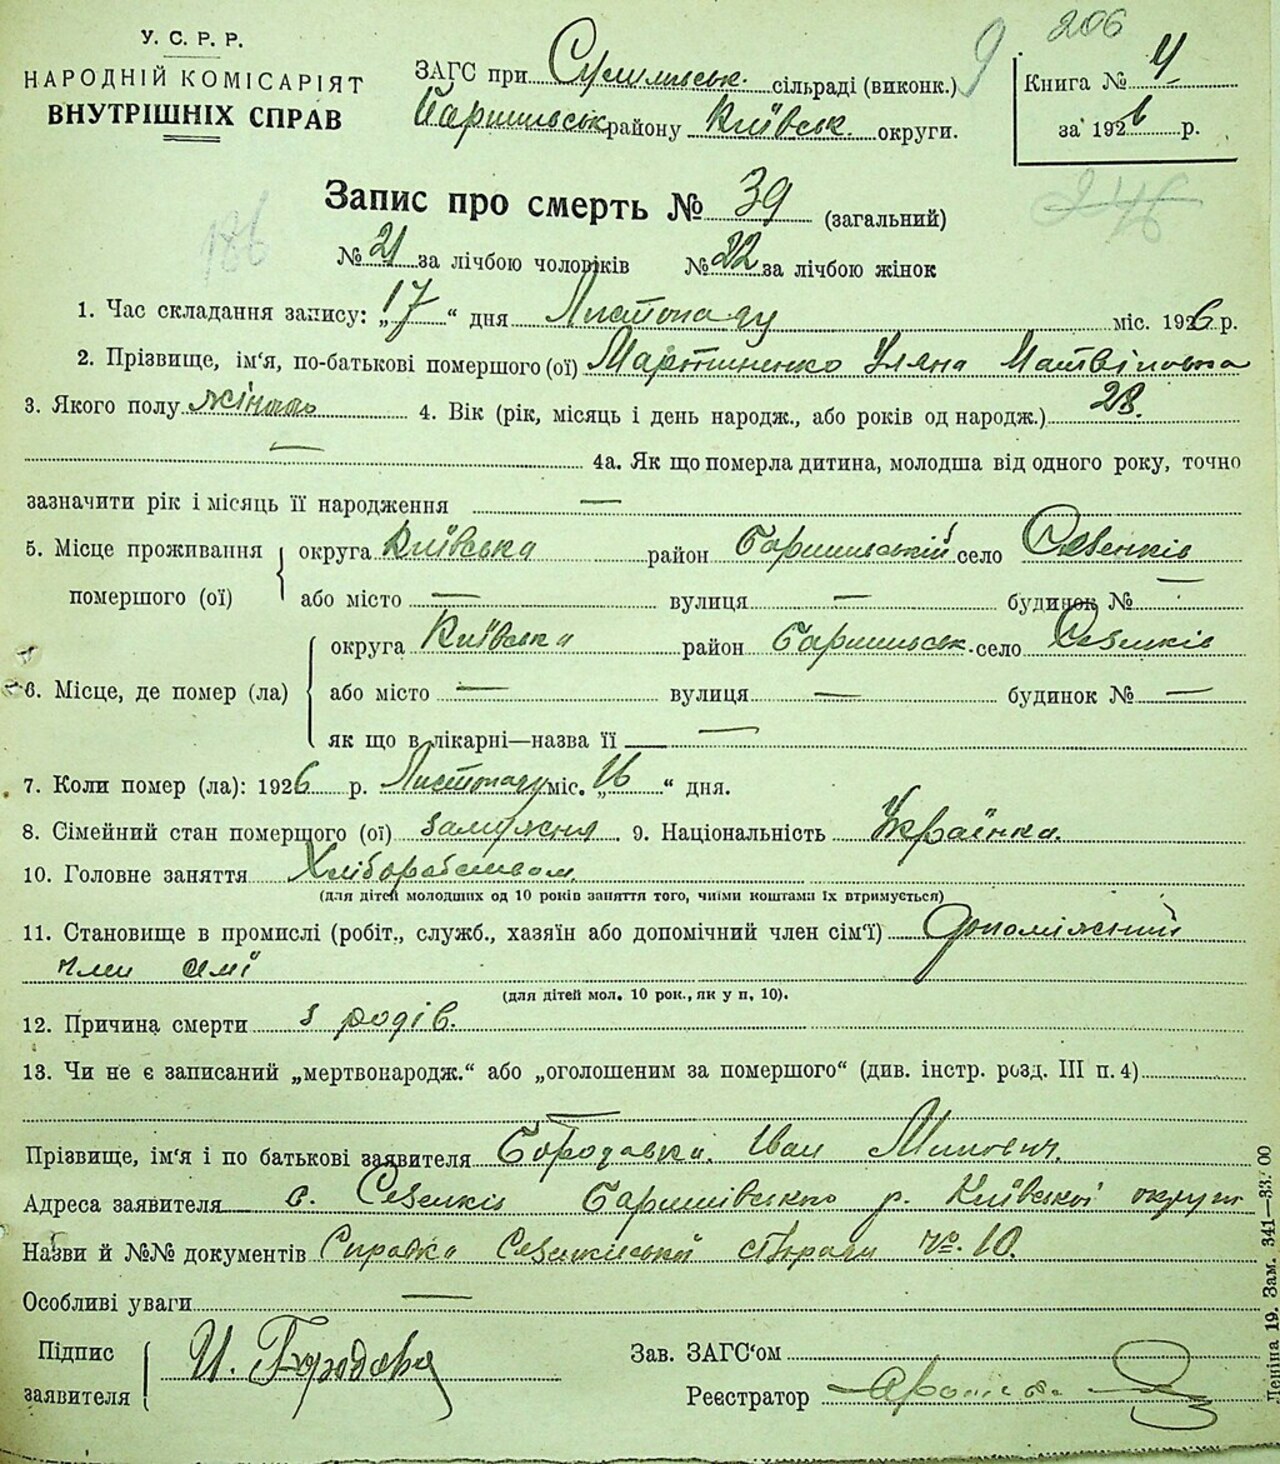 206
У. С. Р. Р.
НАРОДНІЙ КОМІСАРІЯТ
ВНУТРІШНІХ СПРАВ
ЗАГС при сільраді (виконк.) 9
району Київськ. округи.
Книга № 4
за 1926 р.
246
186
Запис про смерть № 39 (загальний)
№ 21 за лічбою чоловіків № 22 за лічбою жінок
1. Час складання запису: „17“ дня Листопаду міс. 1926 р.
2. Прізвище, ім'я, по-батькові помершого (ої) Мартиненко Уляна Матвіповна
3. Якого полу 4. Вік (рік, місяць і день народж., або років од народж.) 28.
— 4а. Як що померла дитина, молодша від одного року, точно
зазначити рік і місяць її народження —
5. Місце проживання помершого (ої) округа Київська район Баришівський село Селенків
або місто — вулиця — будинок № —
6. Місце, де помер (ла) округа Київська район Баришівськ. село Селенків
або місто — вулиця — будинок № —
як що в лікарні—назва її —
7. Коли помер (ла): 1926 р. Листопаду міс. „16“ дня.
8. Сімейний стан померщого (ої) замужня 9. Національність Українка.
10. Головне заняття Хліборобством
(для дітей молодших од 10 років заняття того, чиїми коштами їх втримується)
11. Становище в промислі (робіт., служб., хазяїн або допомічний член сім'ї) Допоміжний
член сімї
(для дітей мол. 10 рок., як у п, 10).
12. Причина смерти з родів.
13. Чи не є записаний „мертвонародж.“ або „оголошеним за помершого“ (див. інстр. розд. III п. 4)
—
Прізвище, ім'я і по батькові заявителя Бородавка. Іван
Адреса заявителя с. Баришівського р. Київської округи
Назви й №№ документів Справка сільради № 10.
Особливі уваги —
Підпис заявителя И. Бородавка
Зав. ЗАГС'ом
Реєстратор
Леніна 19. Зам. 341—33.00